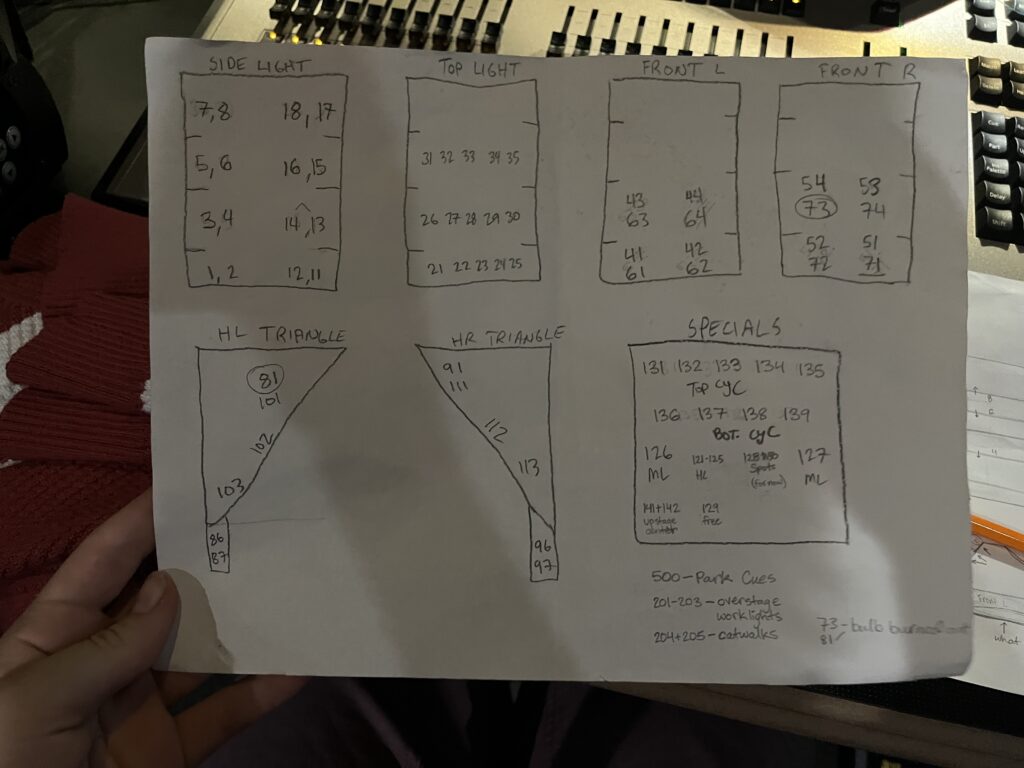 SIDE LIGHT
7,8 18,17
5,6 16,15
3,4 14,13
1,2 12,11
TOP LIGHT
31 32 33 34 35
26 27 28 29 30
21 22 23 24 25
FRONT L
43 44
63 64
41 42
61 62
FRONT R
54 53
73 74
52 51
72 71
HL TRIANGLE
81
101
102
103
86
87
HR TRIANGLE
91
111
112
113
96
97
SPECIALS
131 132 133 134 135
TOP CYC
136 137 138 139
BOT. CYC
126
ML
121-125
HL
Spots
(for now)
127
ML
141+142
upstage
129
free
500-Park Cues
201-203-overstage
worklights
204+205-catwalks
73-bulb burned out
81✓
Front L
what